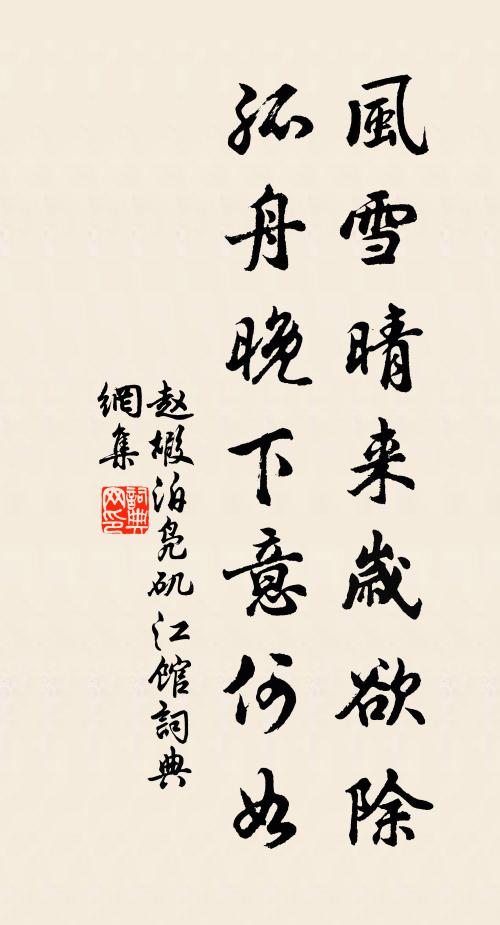 風雪晴来歲欲除
孤舟晚下意何如
赵嘏泊凫矶江馆詞典
網集
詞典
网印